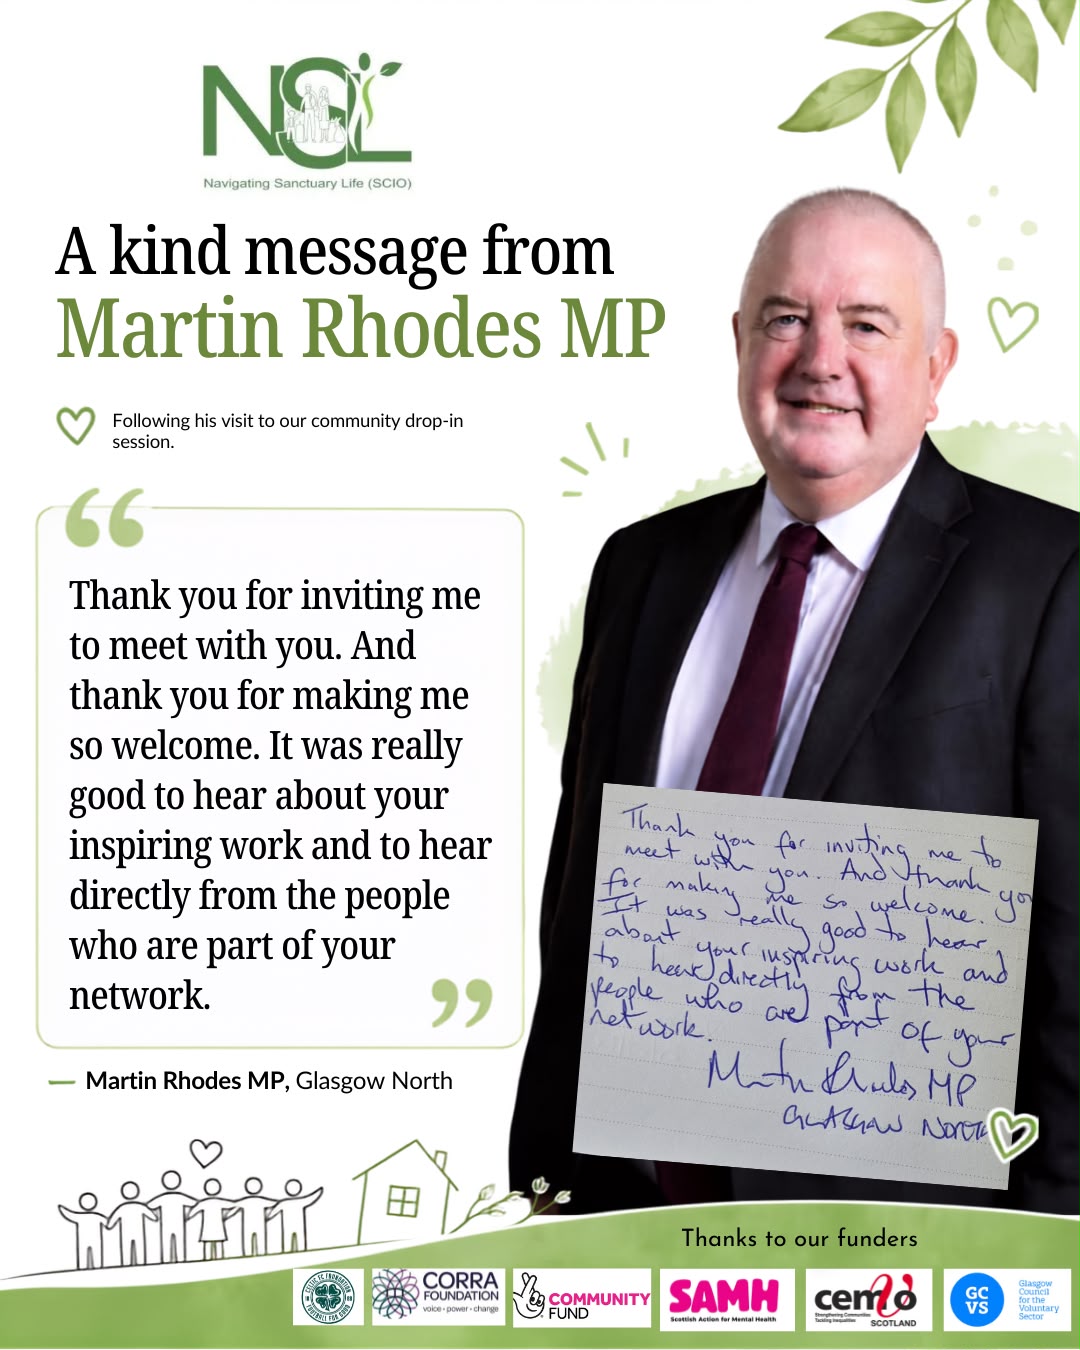 NSL
Navigating Sanctuary Life (SCIO)
A kind message from
Martin Rhodes MP
Following his visit to our community drop-in
session.
“
Thank you for inviting me
to meet with you. And
thank you for making me
so welcome. It was really
good to hear about your
inspiring work and to hear
directly from the people
who are part of your
network.
”
— Martin Rhodes MP, Glasgow North
Thank you for inviting me to
meet with you. And thank you
for making me so welcome.
It was really good to hear
about your inspiring work and
to hear directly from the
people who are part of your
network.
Martin Rhodes MP
GLASGOW NORTH
Thanks to our funders
CELTIC FC FOUNDATION
FOOTBALL FOR GOOD
CORRA
FOUNDATION
voice • power • change
COMMUNITY
FUND
SAMH
Scottish Action for Mental Health
cemvo
Strengthening Communities
Tackling Inequalities
SCOTLAND
GC
VS
Glasgow
Council
for the
Voluntary
Sector